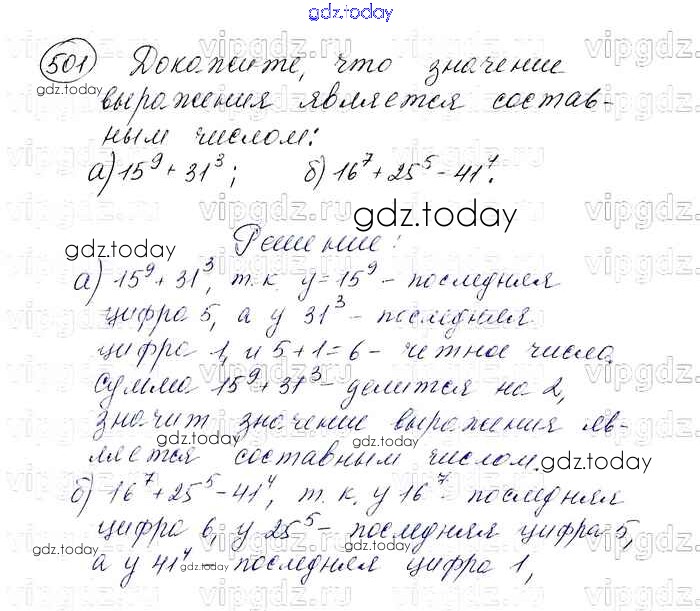 gdz.today
501 Докажите, что значение
выражения является состав-
ным числом:
а) 15⁹ + 31³; б) 16⁷ + 25⁵ - 41⁴.
Решение:
а) 15⁹ + 31³, т.к. у = 15⁹ - последняя
цифра 5, а у 31³ - последняя
цифра 1, и 5 + 1 = 6 - четное число.
сумма 15⁹ + 31³ - делится на 2,
значит значение выражения яв-
ляется составным числом.
б) 16⁷ + 25⁵ - 41⁴, т.к. у 16⁷ - последняя
цифра 6, у 25⁵ - последняя цифра 5,
а у 41⁴ - последняя цифра 1,